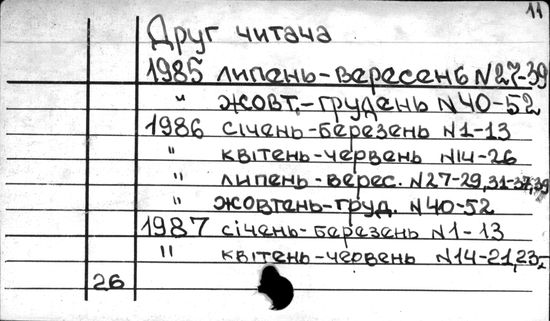 11
Друг читача
1985 липень-вересень N27-39
" жовт.-грудень N40-52
1986 січень-березень N1-13
" квітень-червень N14-26
" липень-верес. N27-29, 31-37, 39
" жовтень-груд. N40-52
1987 січень-березень N1-13
" квітень-червень N14-21, 23-
26